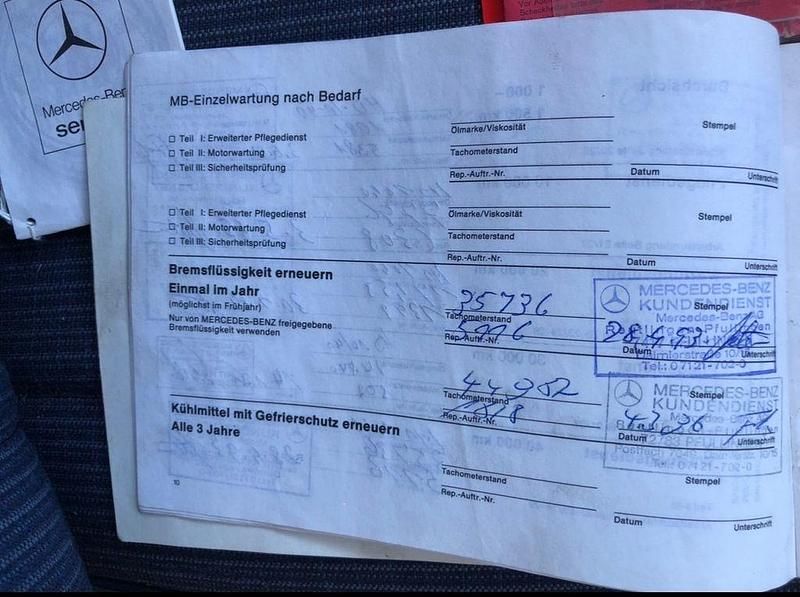 Mercedes-Ben
ser
MB-Einzelwartung nach Bedarf
☐ Teil I: Erweiterter Pflegedienst
☐ Teil II: Motorwartung
☐ Teil III: Sicherheitsprüfung
Ölmarke/Viskosität
Tachometerstand
Rep.-Auftr.-Nr.
Stempel
Datum Unterschrift
☐ Teil I: Erweiterter Pflegedienst
☐ Teil II: Motorwartung
☐ Teil III: Sicherheitsprüfung
Ölmarke/Viskosität
Tachometerstand
Rep.-Auftr.-Nr.
Stempel
Datum Unterschrift
Bremsflüssigkeit erneuern
Einmal im Jahr
(möglichst im Frühjahr)
Nur von MERCEDES-BENZ freigegebene
Bremsflüssigkeit verwenden
35736
Tachometerstand
5006
Rep.-Auftr.-Nr.
MERCEDES-BENZ
Stempel
KUNDENDIENST
Mercedes-Benz AG
Datum Unterschrift
Daimlerstraße 10/
Tel.: 07121-702-0
44952
Tachometerstand
Rep.-Auftr.-Nr.
MERCEDES-BENZ
Stempel
KUNDENDIENST
Datum Unterschrift
Tel.: 07121-702-0
Kühlmittel mit Gefrierschutz erneuern
Alle 3 Jahre
Tachometerstand
Rep.-Auftr.-Nr.
Stempel
Datum Unterschrift
10